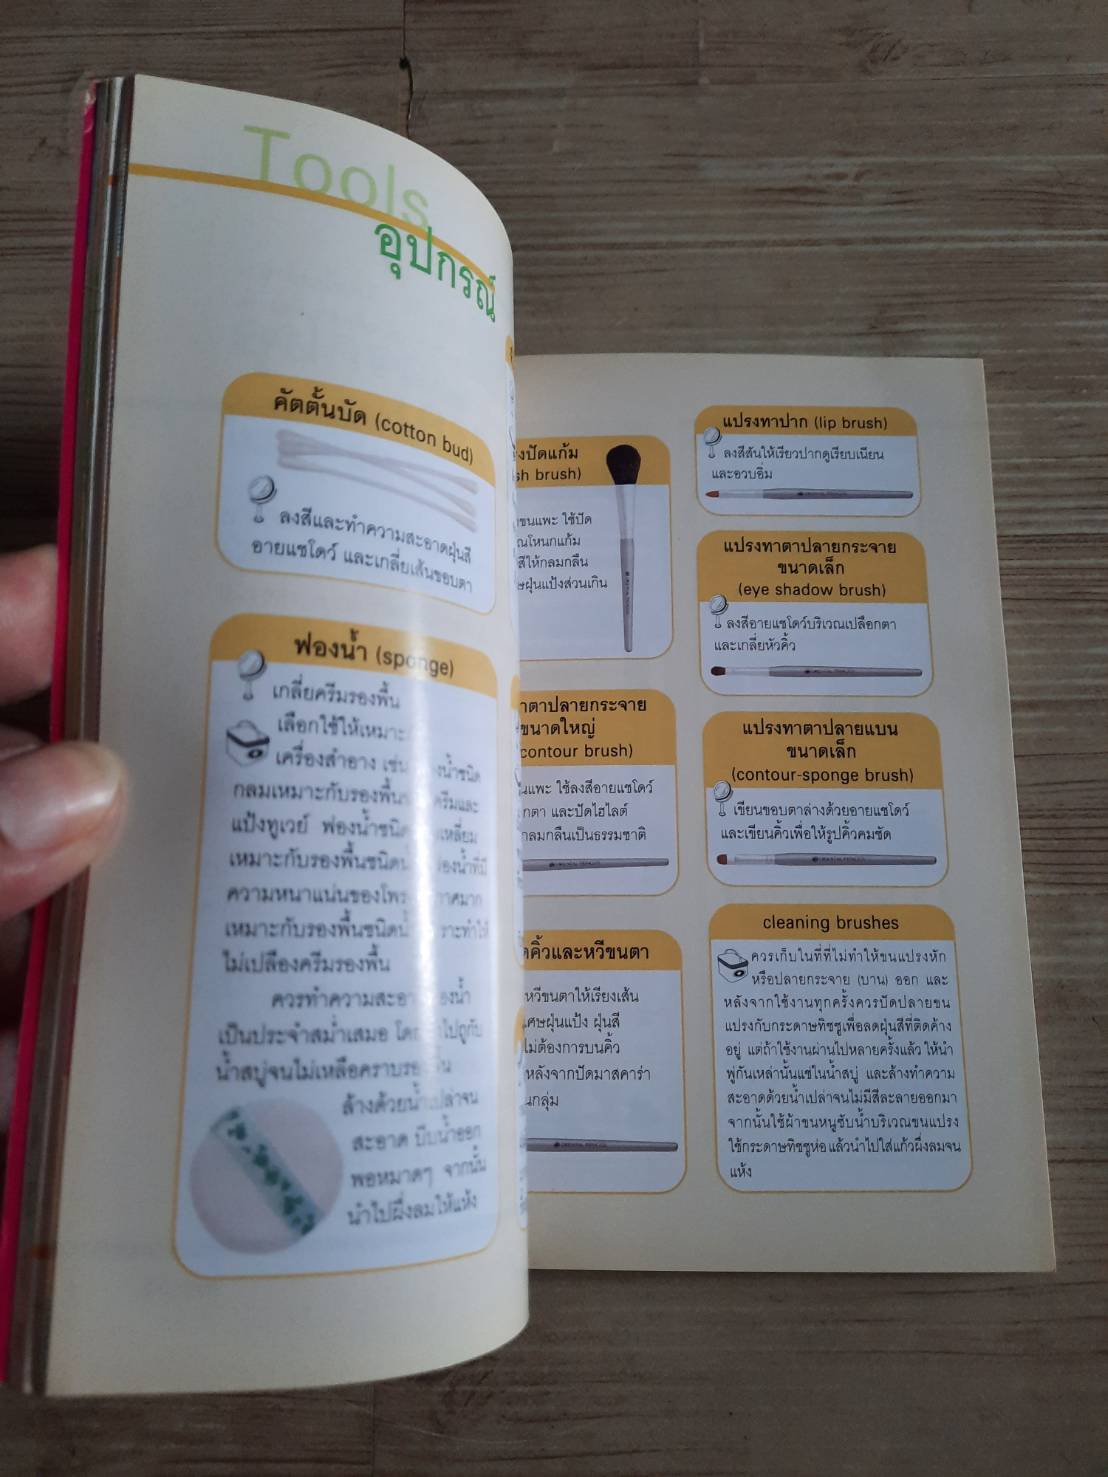 Tools
อุปกรณ์
คัตตั้นบัด (cotton bud)
ลงสีและทำความสะอาดฝุ่นสี
อายแชโดว์ และเกลี่ยเส้นขอบตา
ฟองน้ำ (sponge)
เกลี่ยครีมรองพื้น
เลือกใช้ให้เหมาะ
เครื่องสำอาง เช่น
กลมเหมาะกับรองพื้น
แป้งทูเวย์ ฟองน้ำชนิด
เหมาะกับรองพื้นชนิด
ความหนาแน่นของ
เหมาะกับรองพื้นชนิด
ไม่เปลืองครีมรองพื้น
ควรทำความสะอา
เป็นประจำสม่ำเสมอ
น้ำสบู่จนไม่เหลือคราบ
ล้างด้วยน้ำเปล่าจน
สะอาด บีบน้ำออก
พอหมาดๆ จากนั้น
นำไปผึ่งลมให้แห้ง
ปัดแก้ม
sh brush)
ขนแพะ ใช้ปัด
ณโหนกแก้ม
สีให้กลมกลืน
ษฝุ่นแป้งส่วนเกิน
าตาปลายกระจาย
ขนาดใหญ่
contour brush)
นแพะ ใช้ลงสีอายแชโดว์
กตา และปัดไฮไลต์
กลมกลืนเป็นธรรมชาติ
คิ้วและหวีขนตา
หวีขนตาให้เรียงเส้น
เศษฝุ่นแป้ง ฝุ่นสี
ไม่ต้องการบนคิ้ว
หลังจากปัดมาสคาร่า
นกลุ่ม
แปรงทาปาก (lip brush)
ลงสีสันให้เรียวปากดูเรียบเนียน
และอวบอิ่ม
แปรงทาตาปลายกระจาย
ขนาดเล็ก
(eye shadow brush)
ลงสีอายแชโดว์บริเวณเปลือกตา
และเกลี่ยหัวคิ้ว
แปรงทาตาปลายแบน
ขนาดเล็ก
(contour-sponge brush)
เขียนขอบตาล่างด้วยอายแชโดว์
และเขียนคิ้วเพื่อให้รูปคิ้วคมชัด
cleaning brushes
ควรเก็บในที่ที่ไม่ทำให้ขนแปรงหัก
หรือปลายกระจาย (บาน) ออก และ
หลังจากใช้งานทุกครั้งควรปัดปลายขน
แปรงกับกระดาษทิชชูเพื่อลดฝุ่นสีที่ติดค้าง
อยู่ แต่ถ้าใช้งานผ่านไปหลายครั้งแล้ว ให้นำ
พู่กันเหล่านั้นแช่ในน้ำสบู่ และล้างทำความ
สะอาดด้วยน้ำเปล่าจนไม่มีสีละลายออกมา
จากนั้นใช้ผ้าขนหนูซับน้ำบริเวณขนแปรง
ใช้กระดาษทิชชูห่อแล้วนำไปใส่แก้วผึ่งลมจน
แห้ง